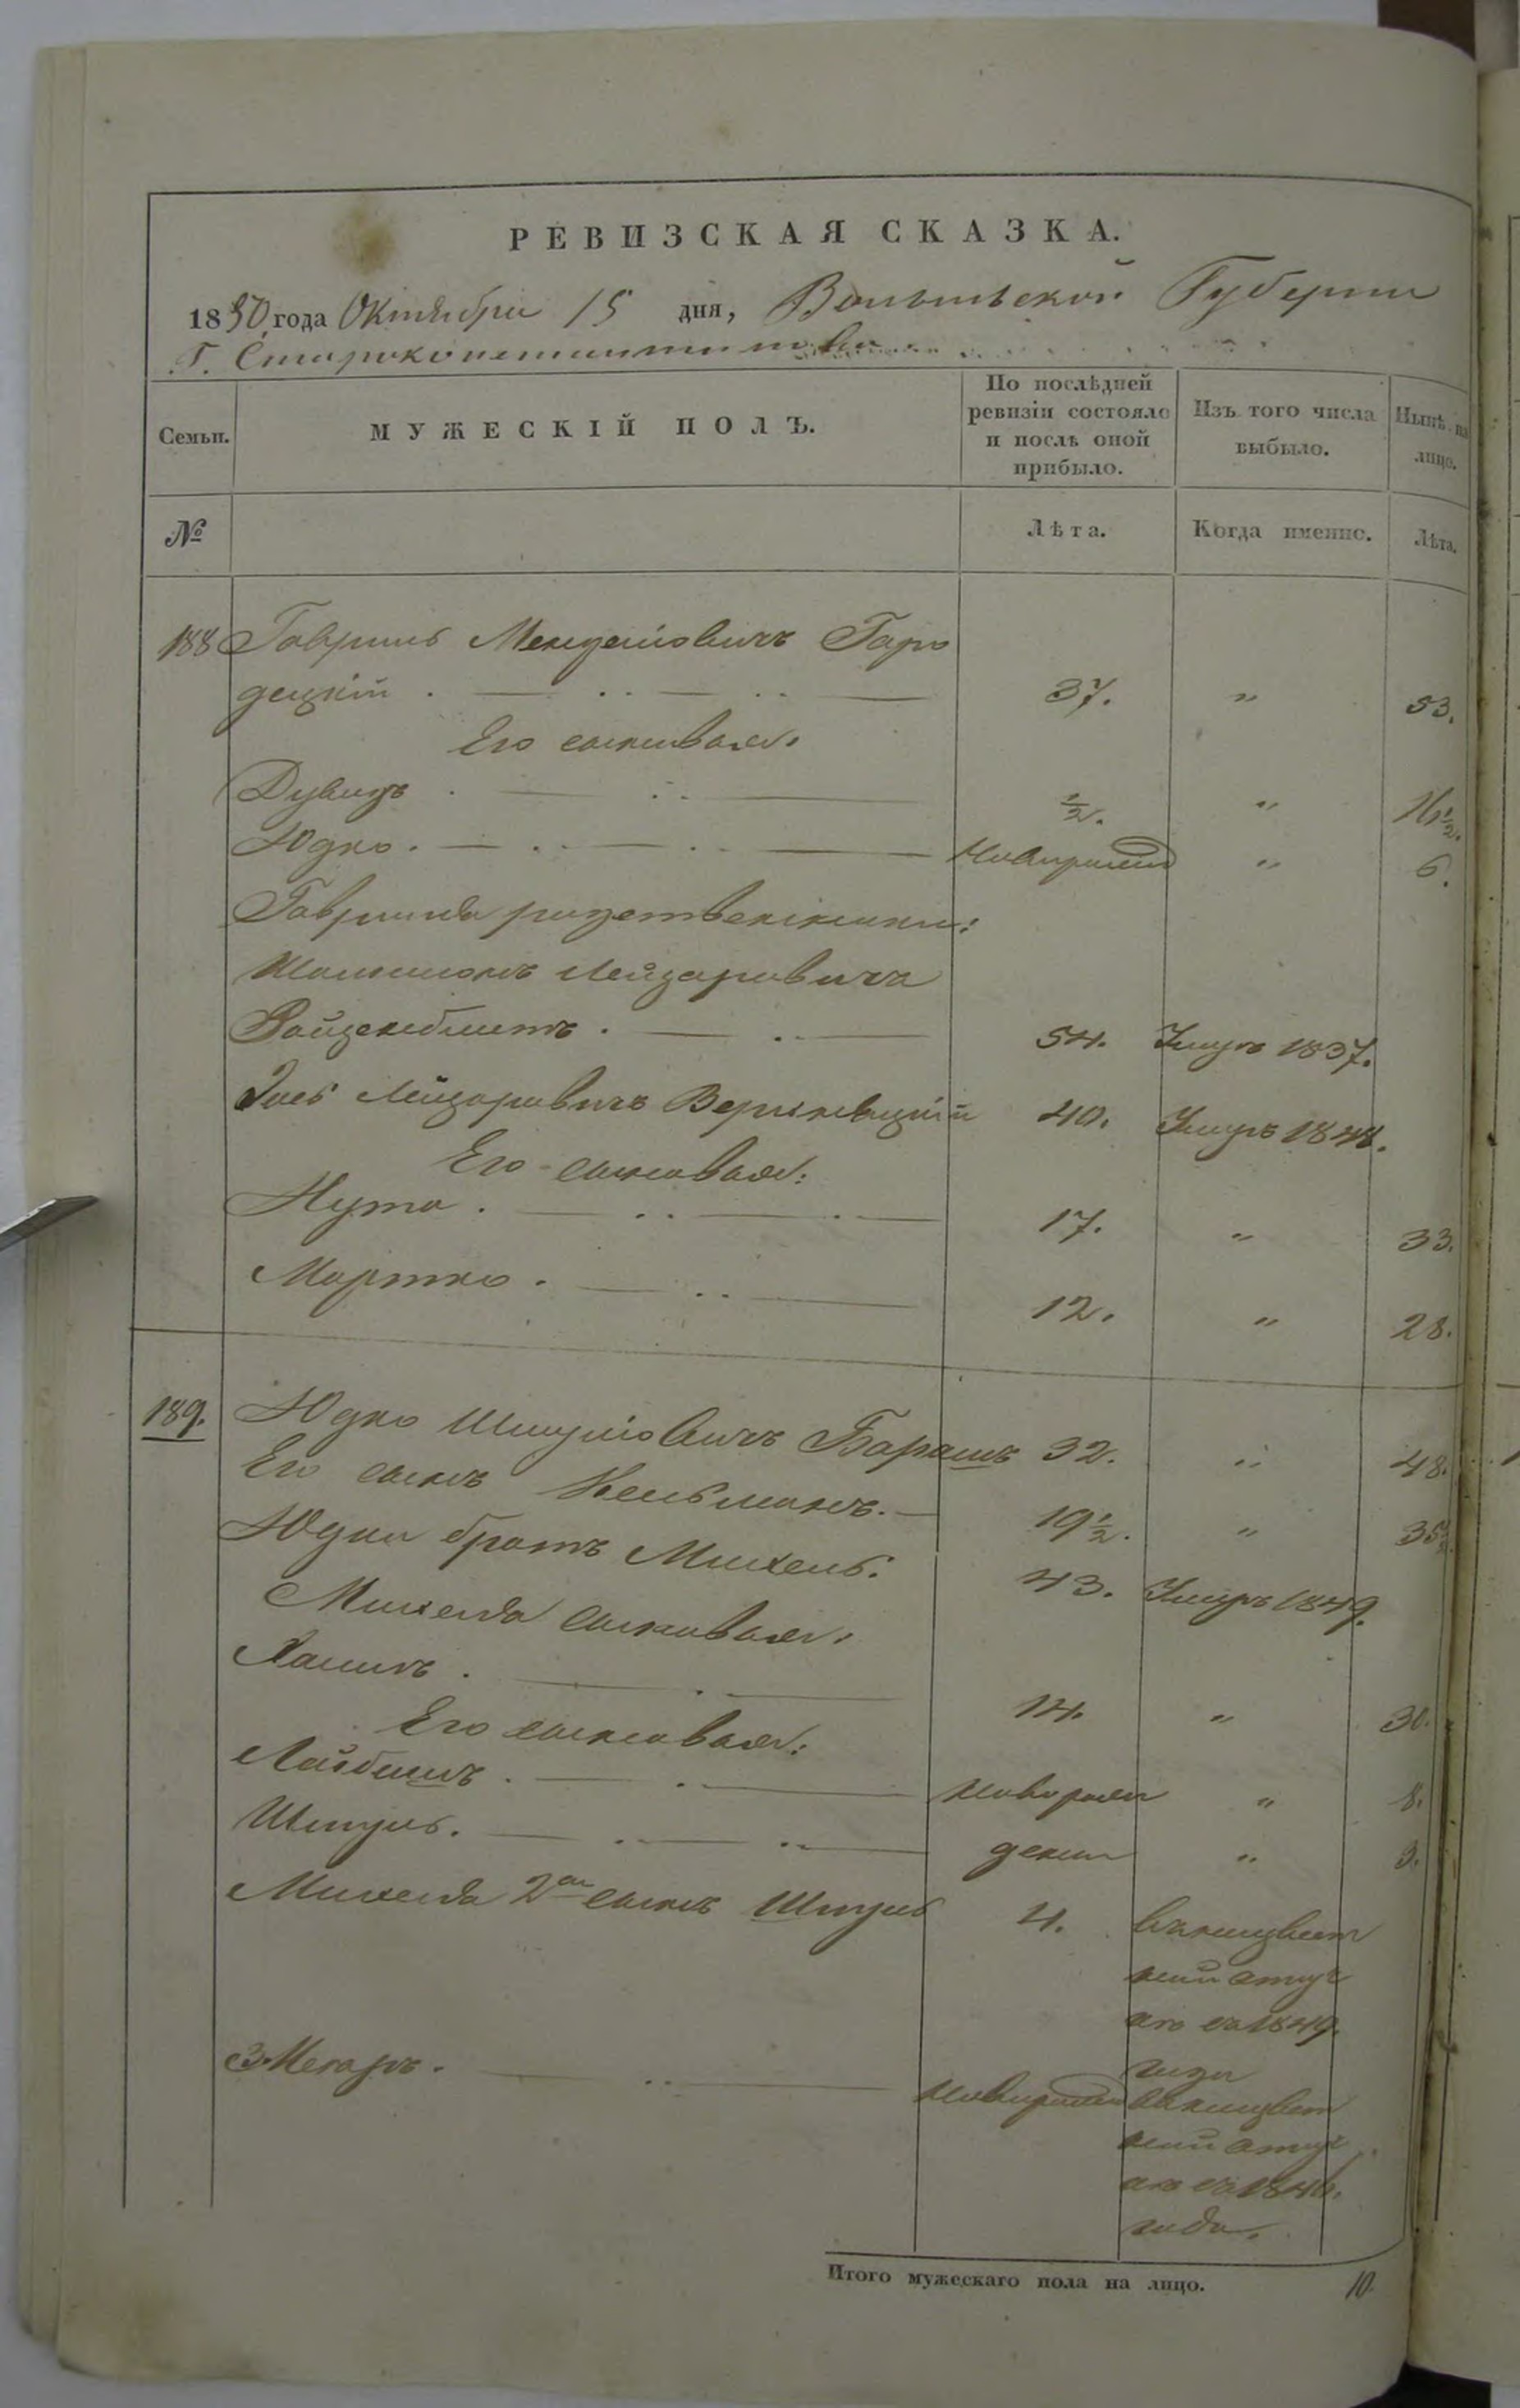 РЕВИЗСКАЯ СКАЗКА.
1850 года Октября 15 дня, Волынской Губернии
Г. Староконстантинова
Семьи. МУЖЕСКІЙ ПОЛЪ. По послѣдней ревизіи состояло и послѣ оной прибыло. Изъ того числа выбыло. Нынѣ на лицо.
№ Лѣта. Когда именно. Лѣта.
188 Гавриль Мендельовичъ Горо
децкій . 37. " 53.
Его сыновья:
Дувидъ . ½. " 16½.
Юдко . новорожден " 6.
Гавриля родственники:
Шліомъ Лейзоровичъ
Вайденблитъ . 54. Умеръ 1837.
Лейзоровичъ 40. Умеръ 1848.
Его сыновья:
Нута . 17. " 33.
Мортко . 12. " 28.
189. Юдко Шмуліовичъ Барашъ 32. " 48.
Его сынъ Кельманъ. 19½. " 35½.
Юдки братъ Михель: 43. Умеръ 1849.
Михеля сыновья:
Хаимъ . 14. " 30.
Его сыновья:
Лайбишъ . новорож " 8.
Шмуль . дени " 3.
Михеля 2й сынъ Шмуль 4. в неизвест
ной отлуч
кѣ съ 1849.
года
3. Мекаръ . новорожден в неизвест
ной отлуч
кѣ съ 1846.
года.
Итого мужескаго пола на лицо. 10.